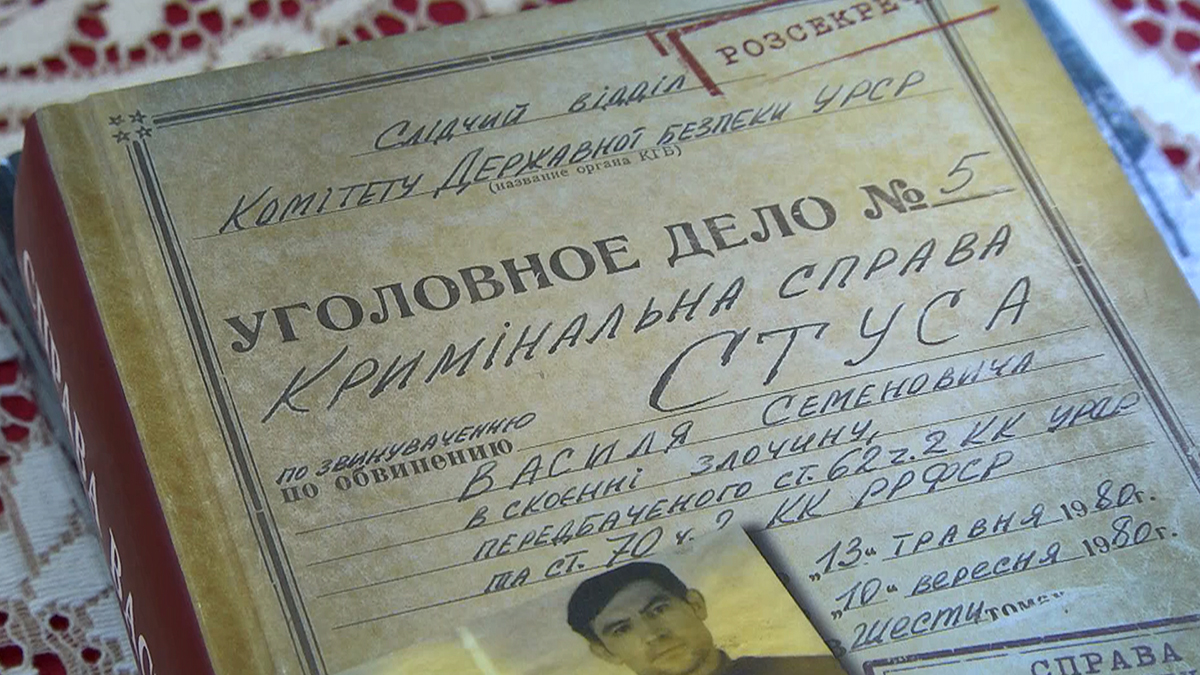 РОЗСЕКРЕ
Слідчий відділ
Комітету Державної безпеки УРСР
(название органа КГБ)
УГОЛОВНОЕ ДЕЛО № 5
Кримінальна справа
СТУСА
по звинуваченню
по обвинению
ВАСИЛЯ СЕМЕНОВИЧА
в скоєнні злочину,
передбаченого ст. 62 ч. 2 КК УРСР
та ст. 70 ч. 2 КК РРФСР
„13“ травня 1980г.
„10“ вересня 1980г.
в шести томах
СПРАВА
СПРАВА ВАС